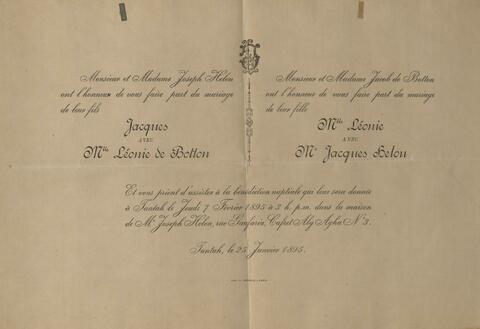 Monsieur et Madame Joseph Helou
ont l'honneur de vous faire part du mariage
de leur fils
Jacques
AVEC
Mlle Léonie de Botton
Monsieur et Madame Jacob de Botton
ont l'honneur de vous faire part du mariage
de leur fille
Mlle Léonie
AVEC
Mr Jacques Helou
Et vous prient d'assister à la bénédiction nuptiale qui leur sera donnée
à Tantah le Jeudi 7 Février 1895 à 3 h. p.m. dans la maison
de Mr Joseph Helou, rue Cafret Aly Agha N° 3.
Tantah, le 25 Janvier 1895.